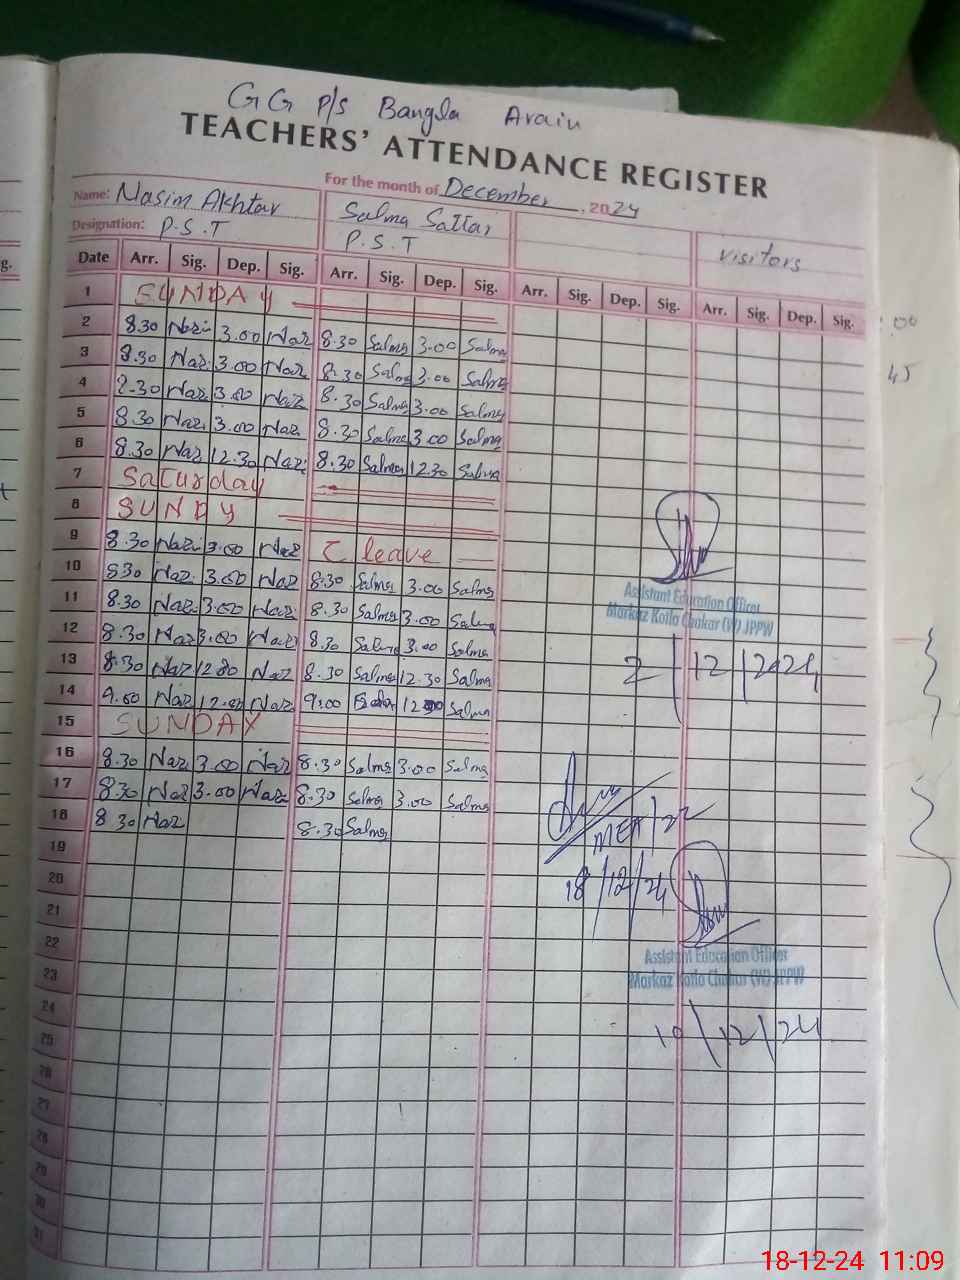 GG P/S Bangla Arain
TEACHERS' ATTENDANCE REGISTER
For the month of December, 2024
Name: Nasim Akhtar Salma Sattar
Designation: P.S.T P.S.T visitors
Date Arr. Sig. Dep. Sig. Arr. Sig. Dep. Sig. Arr. Sig. Dep. Sig. Arr. Sig. Dep. Sig.
1 SUNDAY
2 8.30 Naz 3.00 Naz 8.30 Salma 3.00 Salma
3 8.30 Naz 3.00 Naz 8.30 Salma 3.00 Salma
4 8.30 Naz 3.00 Naz 8.30 Salma 3.00 Salma
5 8.30 Naz 3.00 Naz 8.30 Salma 3.00 Salma
6 8.30 Naz 12.30 Naz 8.30 Salma 12.30 Salma
7 Saturday
8 SUNDY
9 8.30 Naz 3.00 Naz leave
10 8.30 Naz 3.00 Naz 8.30 Salma 3.00 Salma
11 8.30 Naz 3.00 Naz 8.30 Salma 3.00 Salma
12 8.30 Naz 3.00 Naz 8.30 Salma 3.00 Salma
13 8.30 Naz 12.30 Naz 8.30 Salma 12.30 Salma
14 9.00 Naz 12.00 Naz 9.00 Salma
15 SUNDAY
16 8.30 Naz 3.00 Naz 8.30 Salma 3.00 Salma
17 8.30 Naz 3.00 Naz 8.30 Salma 3.00 Salma
18 8.30 Naz 8.30 Salma
19
20
21
22
23
24
25
26
27
28
29
30
31
Assistant Education Officer
Markaz Kotla Chakar (W) JPPW
2/12/2024
MEA/22
18/12/24
Assistant Education Officer
Markaz Kotla Chakar (W) JPPW
10/12/24
18-12-24 11:09